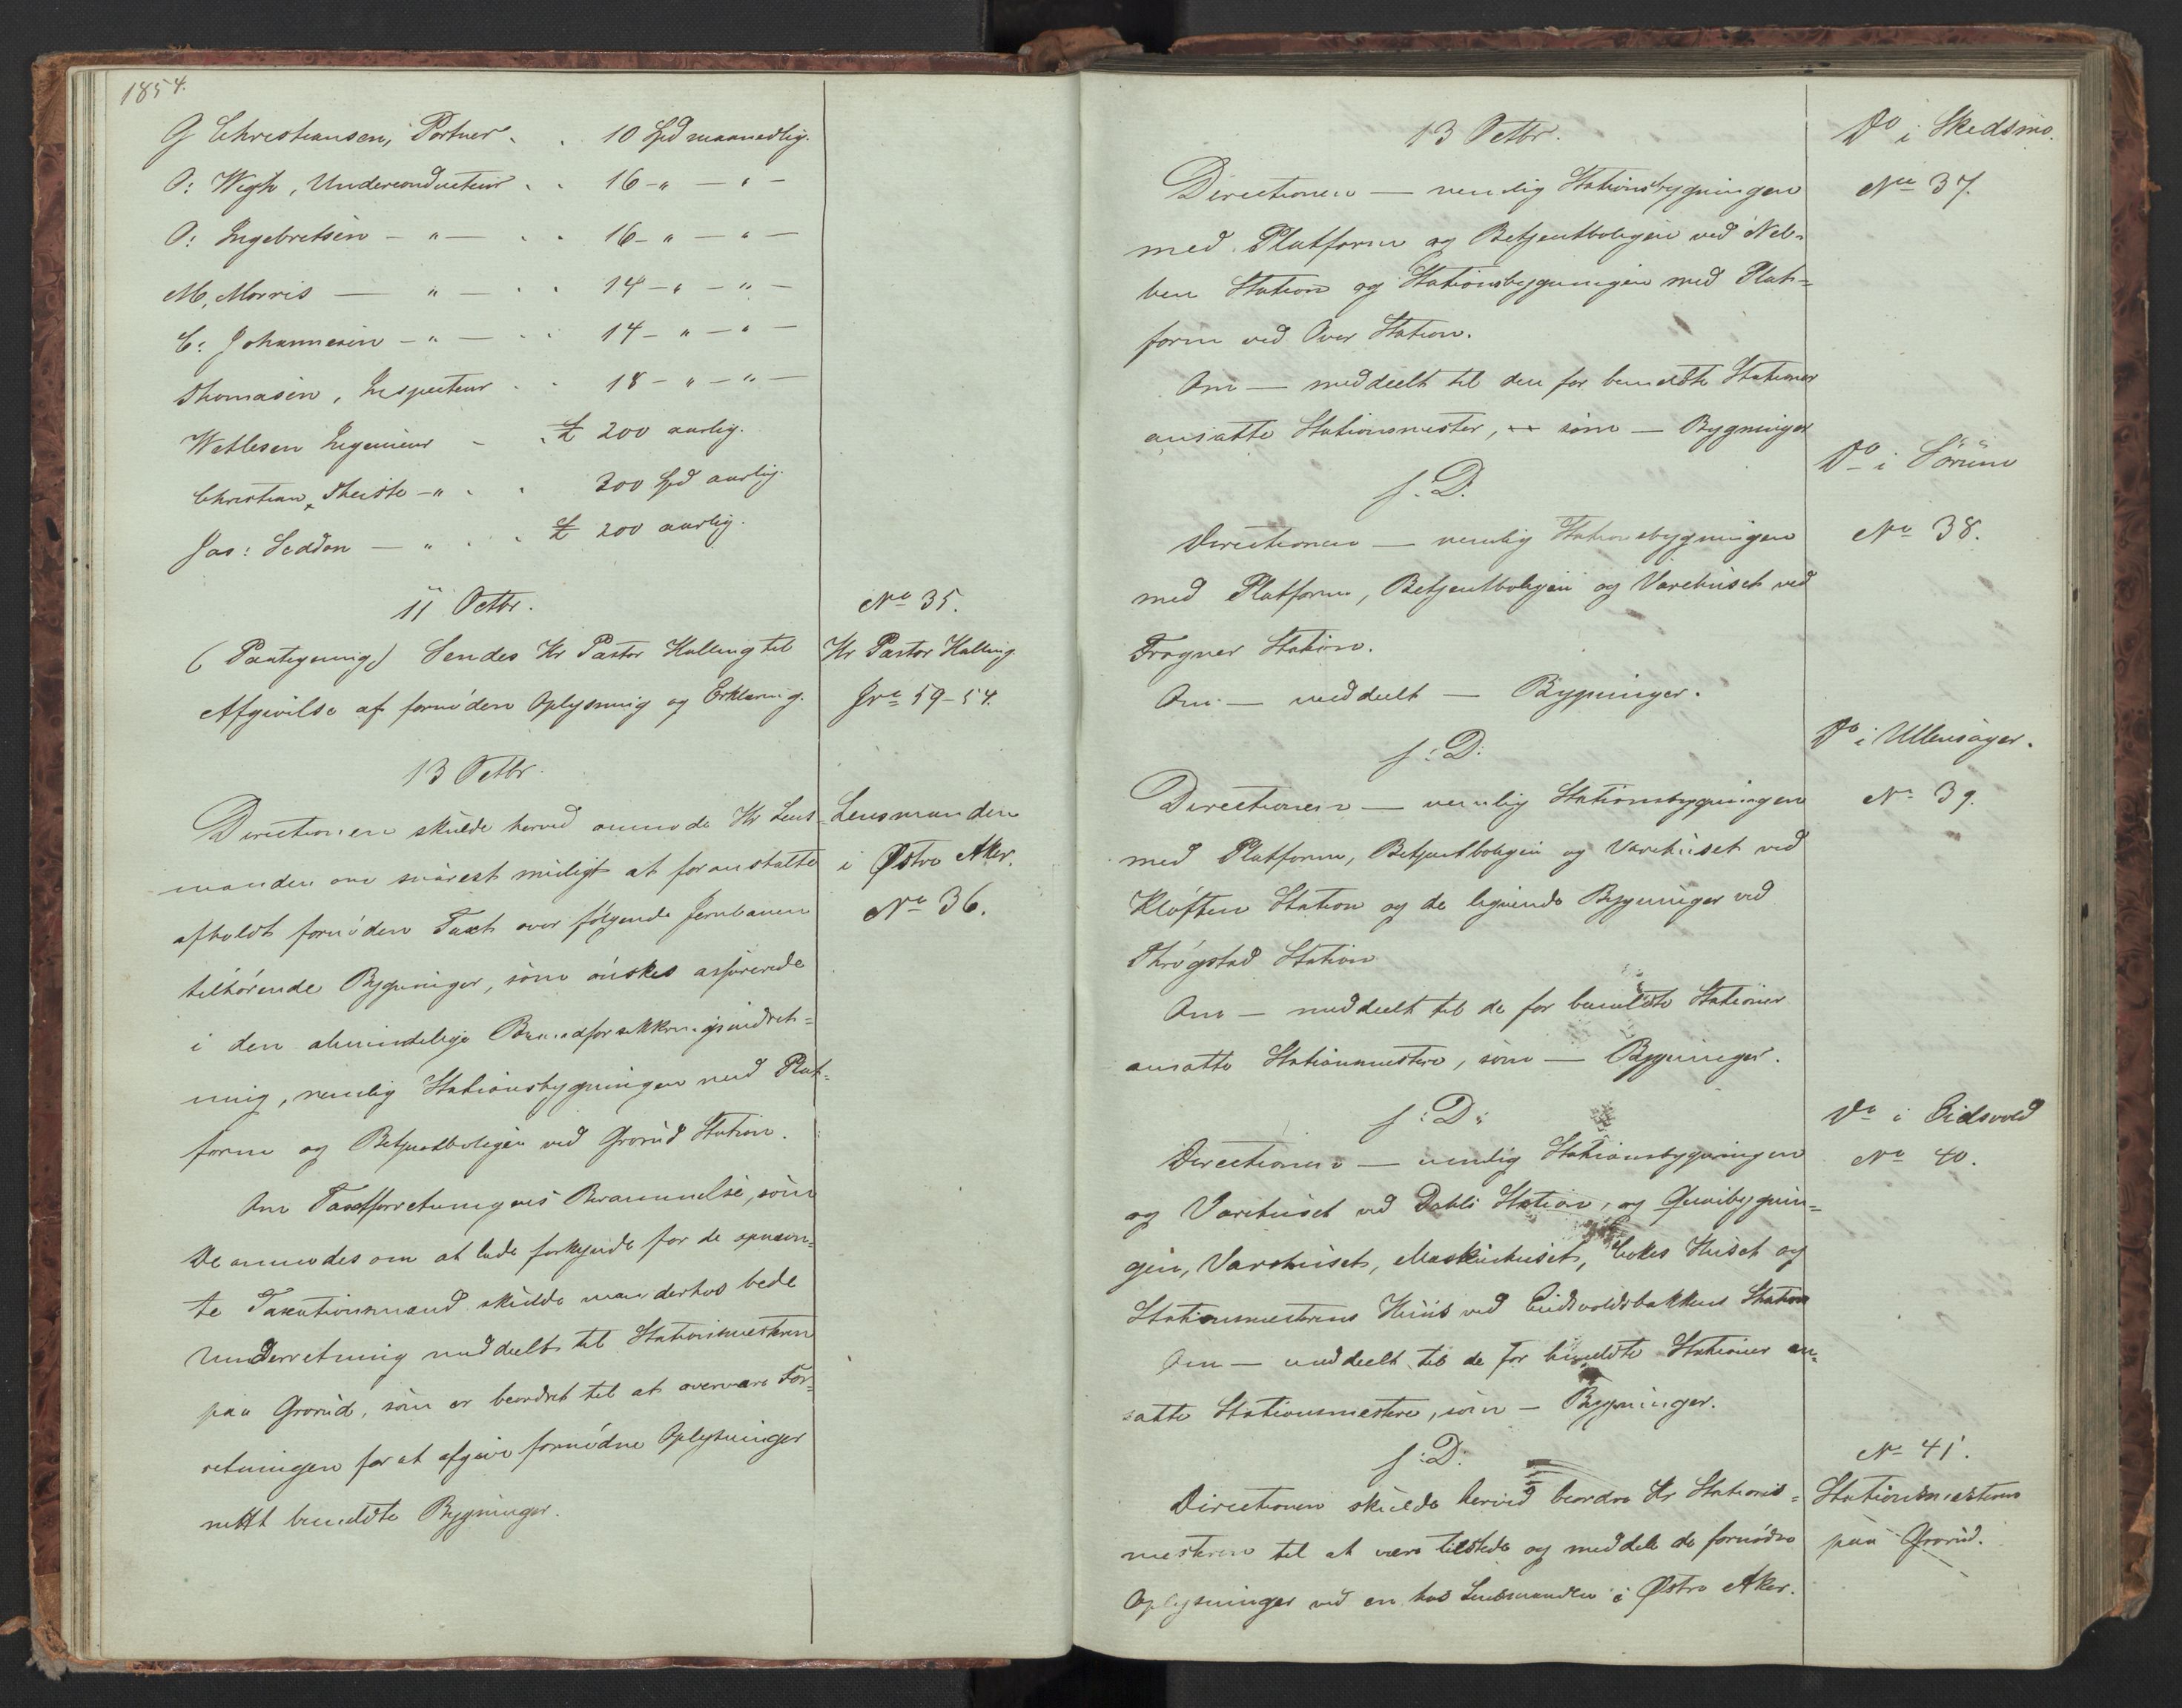 1854.
G Christiansen, Portner . . 10 Spd maanedlig.
O: Wegh, Underconducteur . . 16 - " — " -
O: Ingebretsen - " — . . 16 - " — " —
M, Morris — " — . . 14 - " - " —
C: Johannesen - " — . . 14 - " — " —
Thomasen, Inspecteur . . 18 - " - " —
Wetlesen Ingenieur - . £ 200 aarlig.
Christian Theiste - " . . 300 Spd aarlig.
Jas: Seddon — " . . £ 200 aarlig.
11 Octbr.
No 35.
(Paategning) Sendes Hr Pastor Halling til
Hr Pastor Halling
Afgivelse af fornöden Oplysning og Erklæring.
Jrn 59-54.
13 Octbr.
Directionen skulde herved anmode Hr Lens-
Lensmanden
manden om snarest muligt at foranstalte
i Østre Aker.
afholdt fornöden Taxt over fölgende Jernbanen
No 36.
tilhörende Bygninger, som önskes assurerede
i den almindelige Brandforsikkringsindret-
ning, nemlig Stationsbygningen med Plat-
form og Betjentboligen ved Grorud Station.
Om Taxtforretningens Berammelse, som
De anmodes om at lade forkynde for de opnævn-
te Taxationsmænd skulde man derhos bede
Underretning meddeelt til Stationsmesteren
paa Grorud, som er beordret til at overvære For-
retningen for at afgive fornödne Oplysninger
bemeldte Bygninger.
13 Octbr.
Do i Skedsmo.
Directionen — nemlig Stationsbygningen
No 37.
med Platform og Betjentboligen ved Neb-
ben Station og Stationsbygningen med Plat-
form ved Över Station.
Om — meddeelt til den for bemeldte Stationer
ansatte Stationsmester, som — Bygninger
Do i Sörum
s. D.
Directionen — nemlig Stationsbygningen
No 38.
med Platform, Betjentboligen og Varehuset ved
Frogner Station.
Om — meddeelt — Bygninger.
Do i Ullensager.
s: D:
Directionen — nemlig Stationsbygningen
No 39.
med Platform, Betjentboligen og Varehuset ved
Klöften Station og de lignende Bygninger ved
Thrögstad Station
Om — meddeelt til de for bemeldte Stationer
ansatte Stationsmestere, som — Bygninger.
s: D:
Do i Eidsvold
Directionen — nemlig Stationsbygningen
No 40.
og Varehuset ved Dahls Station, og Quaibygnin-
gen, Varehuset, Maskinhuset, Cokes Huset og
Stationsmesterens Huus ved Eidsvoldsbakkens Station
Om — meddeelt til de for bemeldte Stationer an-
satte Stationsmestere, som — Bygninger.
s: D.
No 41.
Directionen skulde herved beordre Hr Stations-
Stationsmesteren
mesteren til at være tilstede og meddele de fornödne
paa Grorud.
Oplysninger ved en hos Lensmanden i Østre Aker.